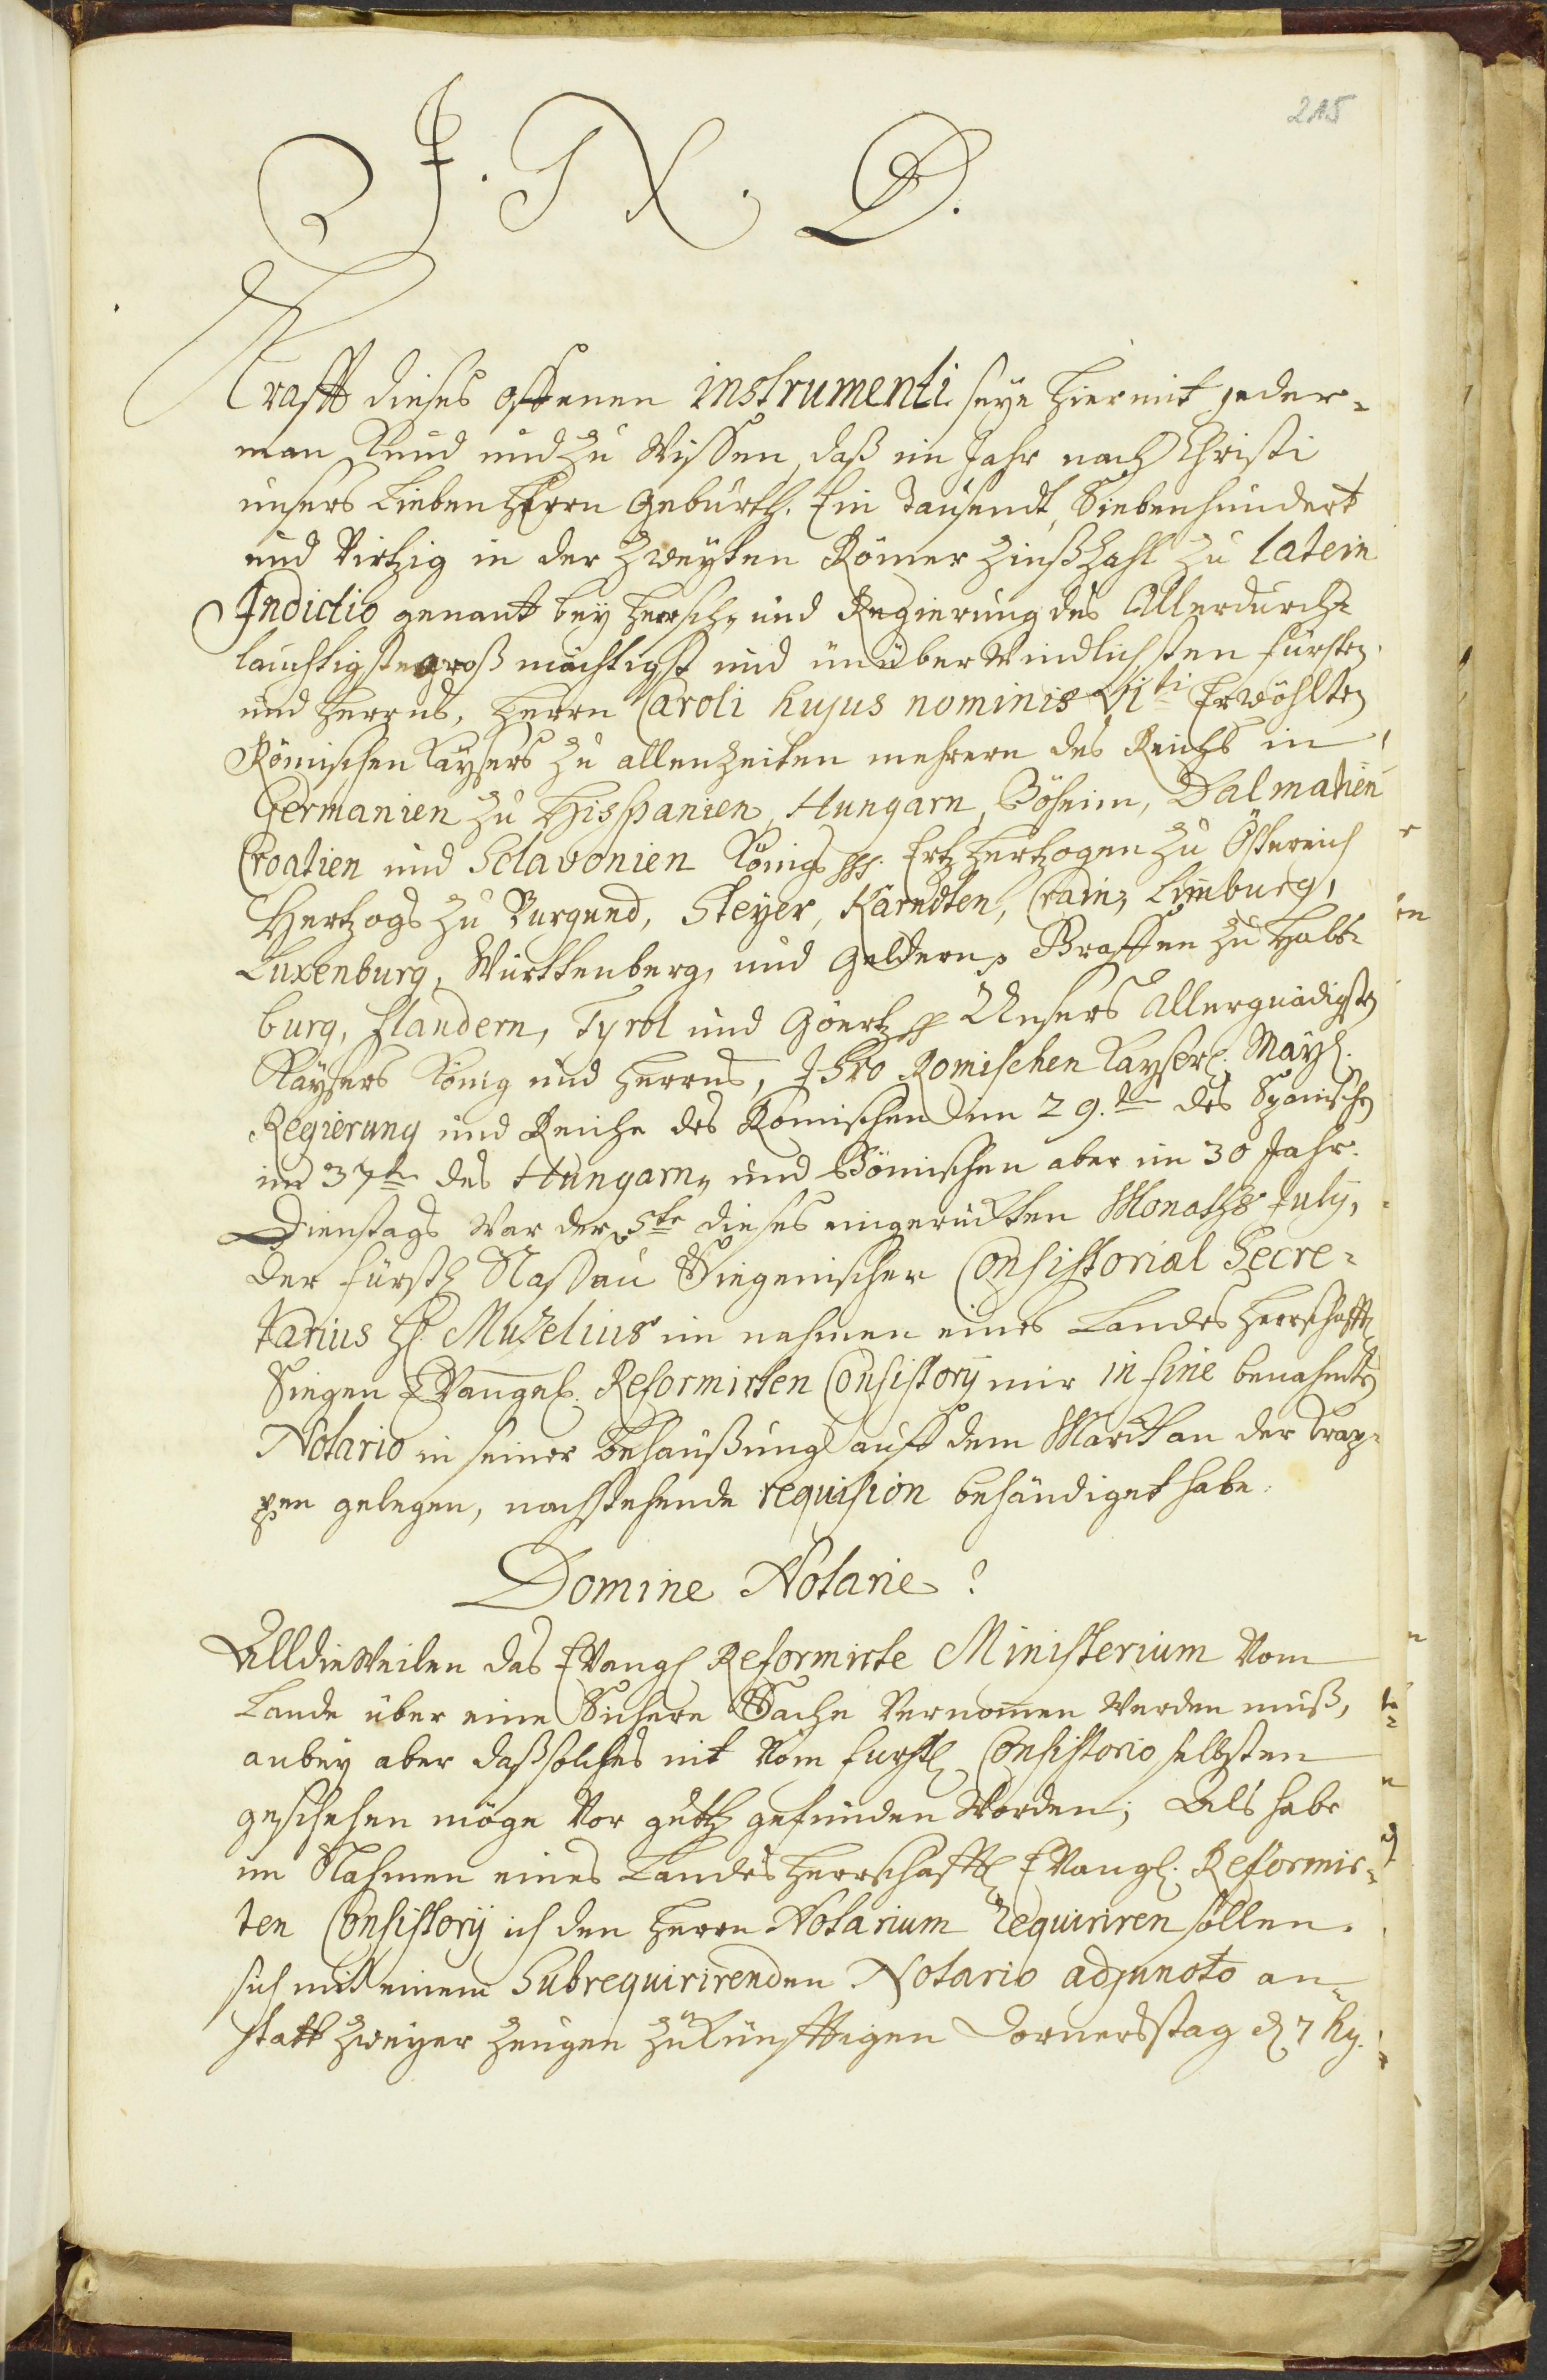 215
J. N. D.
Krafft dieses offenen instrumenti seye hiermit jeder=
man Kund und zu Wissen, daß im Jahr nach Christi
unsers Lieben Herrn Gebürth. Ein Tausendt, Siebenhundert
und Virtzig in der Zweyten Römer Zinß Zahl zu latein
Indictio genant bey Herrsch, und Regierung des Allerdurch=
lauchtigste großmächtigst und unüberwindlichsten fürsten
und Herrns, Herrn Caroli hujus nominis VIti Erwöhlten
Römischen Kaysers zu allen Zeiten mehrern des Reichs in
Germanien zu Hispanien, Hungarn, Böheim, Dalmatien
Croatien und Sclavonien Königs ppp. Ertz Hertzogen zu Östereich
Hertzogs zu Burgund, Steyer, Kärndten, Crain, Limburg,
Luxenburg, Württenberg, und Geldern p Graffen zu Habs=
burg, flandern, Tyrol und Göertz pp Unsers Allergnädigsten
Kaysers König und Herrns, Ihro Romischen Kayserl. Mayt.
Regierung und Reiche des Römischen im 29.ten des Spanischen
im 37ten des Hungarn, und Bömischen aber im 30 Jahr.
Dienstags War der 5te dieses eingerückten Monaths July,
der fürstl Nassau Siegenischer Consistorial Secre=
tarius H. Muzelius im nahmen eines Landes Herrschafftl
Siegen EVangel. Reformirten Consistorij mir in fine benahmten
Notario in seiner Behaußung auff dem Marckt an der Trap=
pen gelegen, nachstehende requision behändiget habe.
Domine Notarie!
AlldieWeilen das EVangl Reformirte Ministerium Vom
Lande über eine Sichere Sache Vernommen Werden muß,
anbey aber daß solches nit Vom fürstl Consistorio selbsten
geschehen möge Vor guth gefunden Worden; Als habe
im Nahmen eines Landes Herrschafftl EVangl. Reformir=
ten Consistorij ich den Herrn Notarium requiriren sollen.
sich mit einem Subrequirirenden Notario adjuncto an=
statt Zweyer Zeugen zukünfftigen Donnerstag d 7 hj.